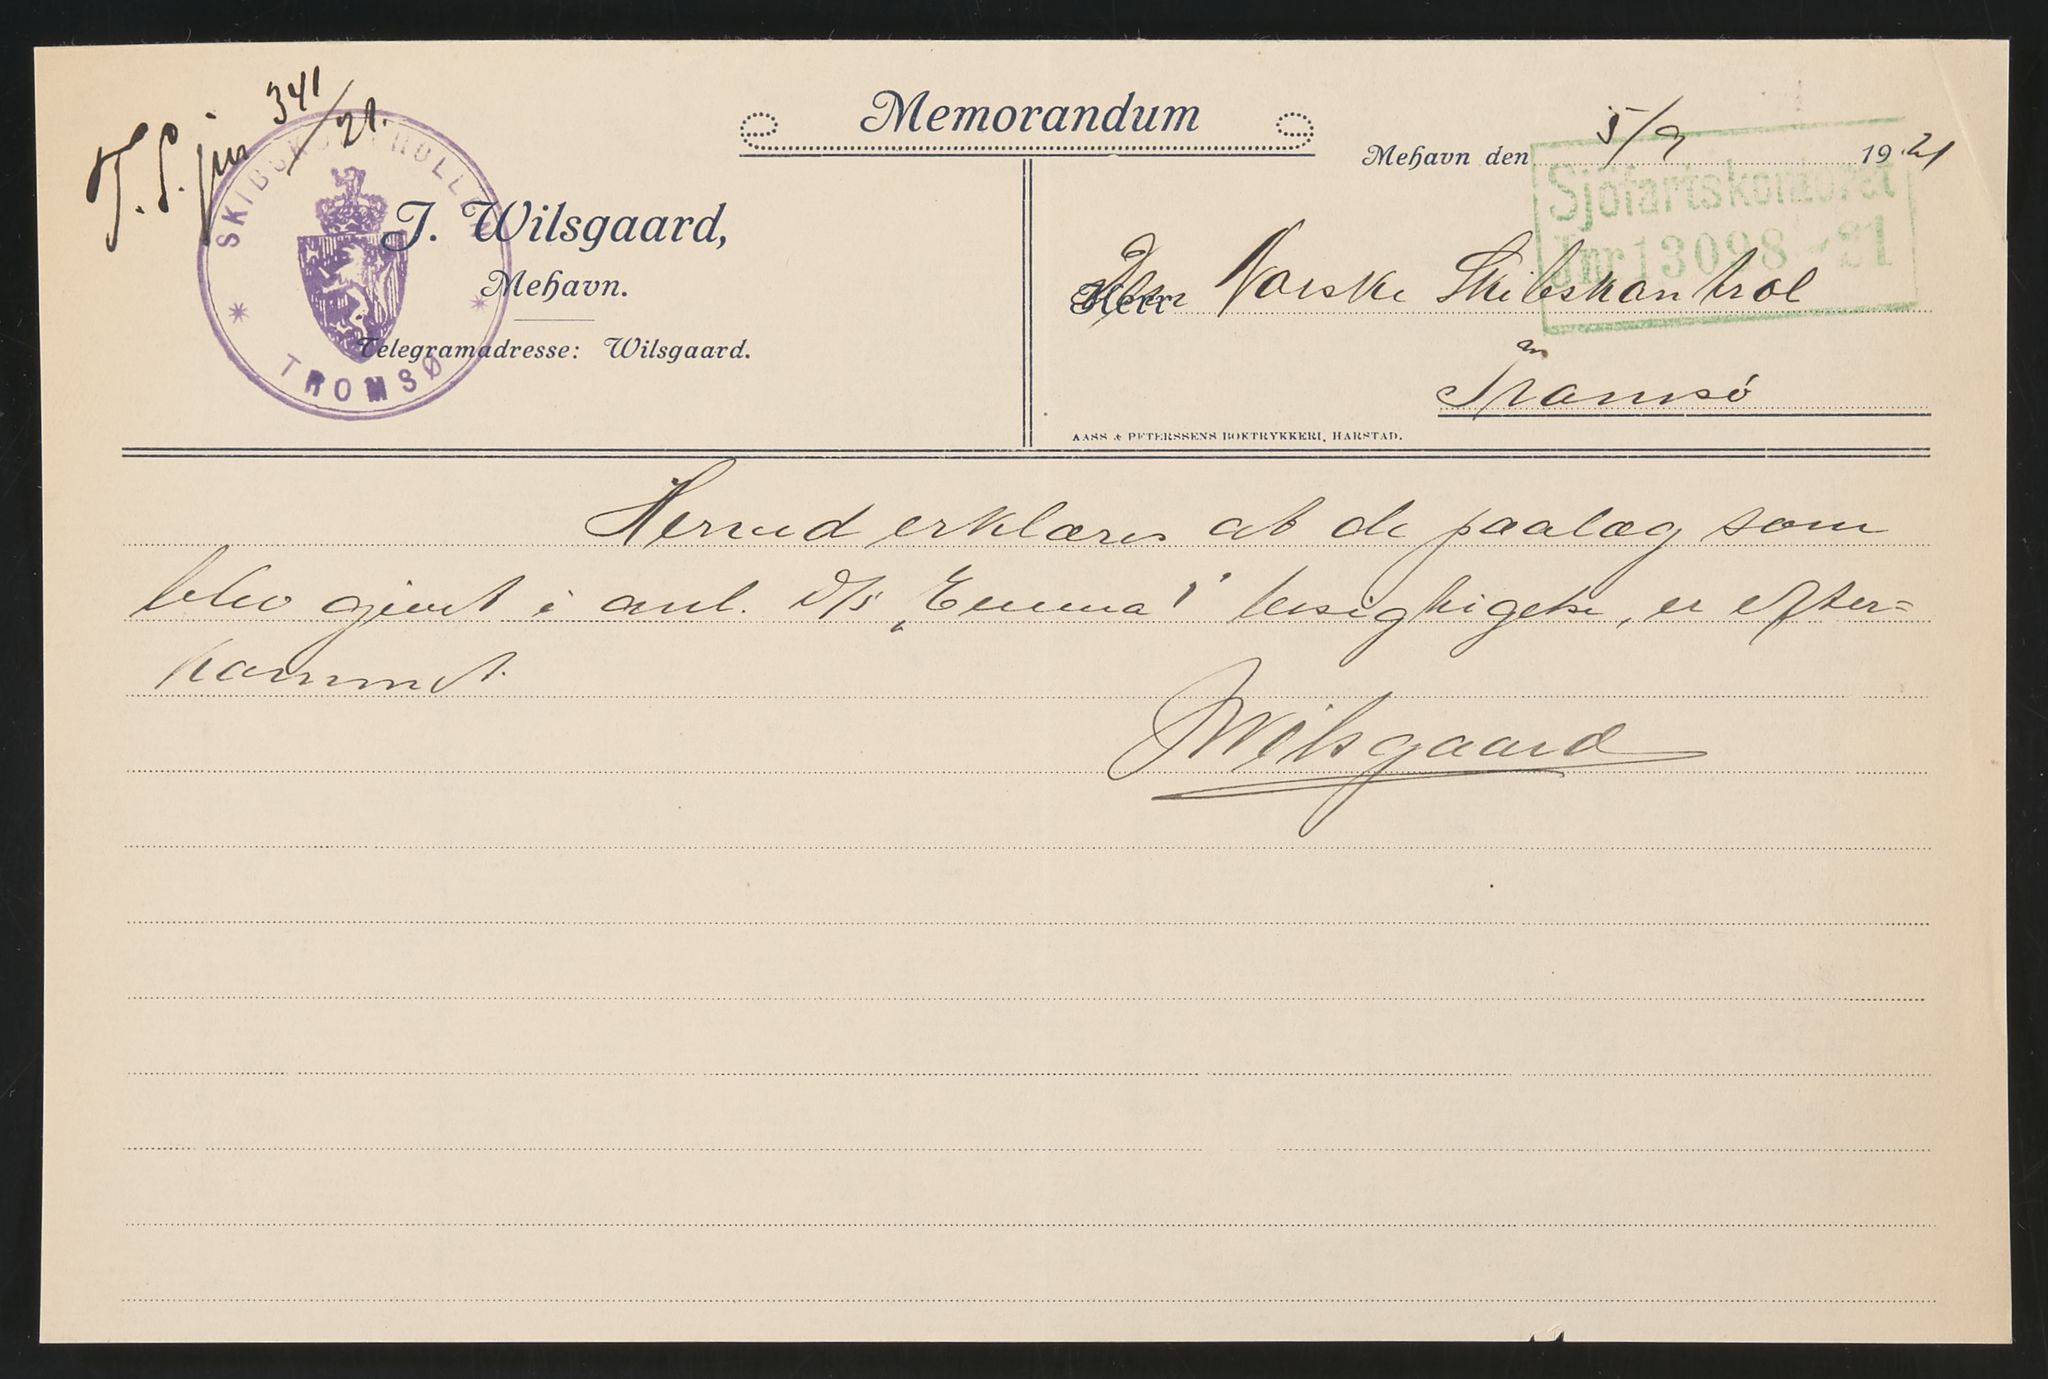 T. S. jnr 341/21.
SKIBSKONTROLLEN
TROMSØ
Memorandum
Mehavn den 5/9 1921
Sjöfartskontoret
Jnr 13098 - 21
J. Wilsgaard,
Mehavn.
Telegramadresse: Wilsgaard.
Herr Den Norske Skibskontrol
Tromsö
AASS & PETERSSENS BOKTRYKKERI, HARSTAD.
Herved erklæres at de paalæg som
blev givet i anl. D/S „Emma I" besigtigelse, er efter=
kommet.
J Wilsgaard